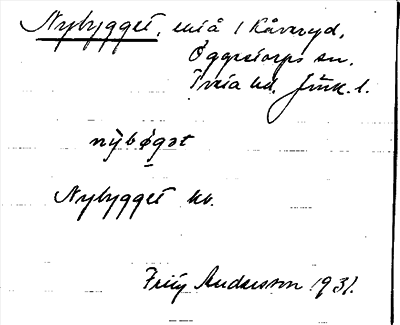 Nybygget, enst å 1 Kåveryd,
Öggestorps sn.
Tveta hd. Jönk. l.
nỳbøgət
Nybygget hb.
Fritz Andersson 1931.